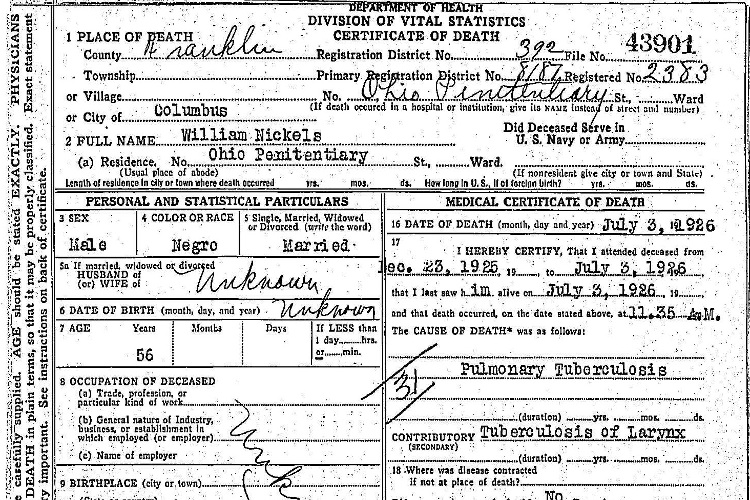 DEPARTMENT OF HEALTH
DIVISION OF VITAL STATISTICS
CERTIFICATE OF DEATH
1 PLACE OF DEATH
County Franklin Registration District No. 392 File No. 43901
Township Primary Registration District No. 8187 Registered No. 2383
or Village No. Ohio Penitentiary St., Ward
or City of Columbus (If death occured in a hospital or institution, give its NAME instead of street and number)
2 FULL NAME William Nickels Did Deceased Serve in U. S. Navy or Army
(a) Residence, No. Ohio Penitentiary St., Ward.
(Usual place of abode) (If nonresident give city or town and State)
Length of residence in city or town where death occurred yrs. mos. ds. How long in U. S., if of foreign birth? yrs. mos. ds.
PERSONAL AND STATISTICAL PARTICULARS
3 SEX
Male
4 COLOR OR RACE
Negro
5 Single, Married, Widowed
or Divorced (write the word)
Married
5a If married, widowed or divorced
HUSBAND of
(or) WIFE of Unknown
6 DATE OF BIRTH (month, day, and year) Unknown
7 AGE Years Months Days If LESS than
1 day, hrs.
or min.
56
8 OCCUPATION OF DECEASED
(a) Trade, profession, or
particular kind of work
(b) General nature of Industry,
business, or establishment in
which employed (or employer)
(c) Name of employer
Unk
9 BIRTHPLACE (city or town)
MEDICAL CERTIFICATE OF DEATH
16 DATE OF DEATH (month, day and year) July 3, 1926
17
I HEREBY CERTIFY, That I attended deceased from
Dec. 23, 1925, 19 to July 3, 1926
that I last saw him alive on July 3, 1926, 19
and that death occurred, on the date stated above, at 11.35 A.M.
The CAUSE OF DEATH* was as follows:
31
Pulmonary Tuberculosis
(duration) yrs. mos. ds.
CONTRIBUTORY Tuberculosis of Larynx
(SECONDARY)
(duration) yrs. mos. ds.
18 Where was disease contracted
if not at place of death?
No
e carefully supplied. AGE should be stated EXACTLY. PHYSICIANS
DEATH in plain terms, so that it may be properly classified. Exact statement
y important. See instructions on back of certificate.